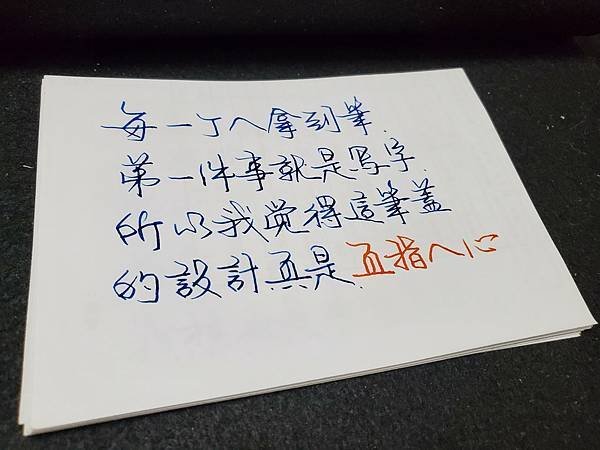 每一个人拿到筆
第一件事就是写字
所以我觉得這筆蓋
的設計真是直指人心